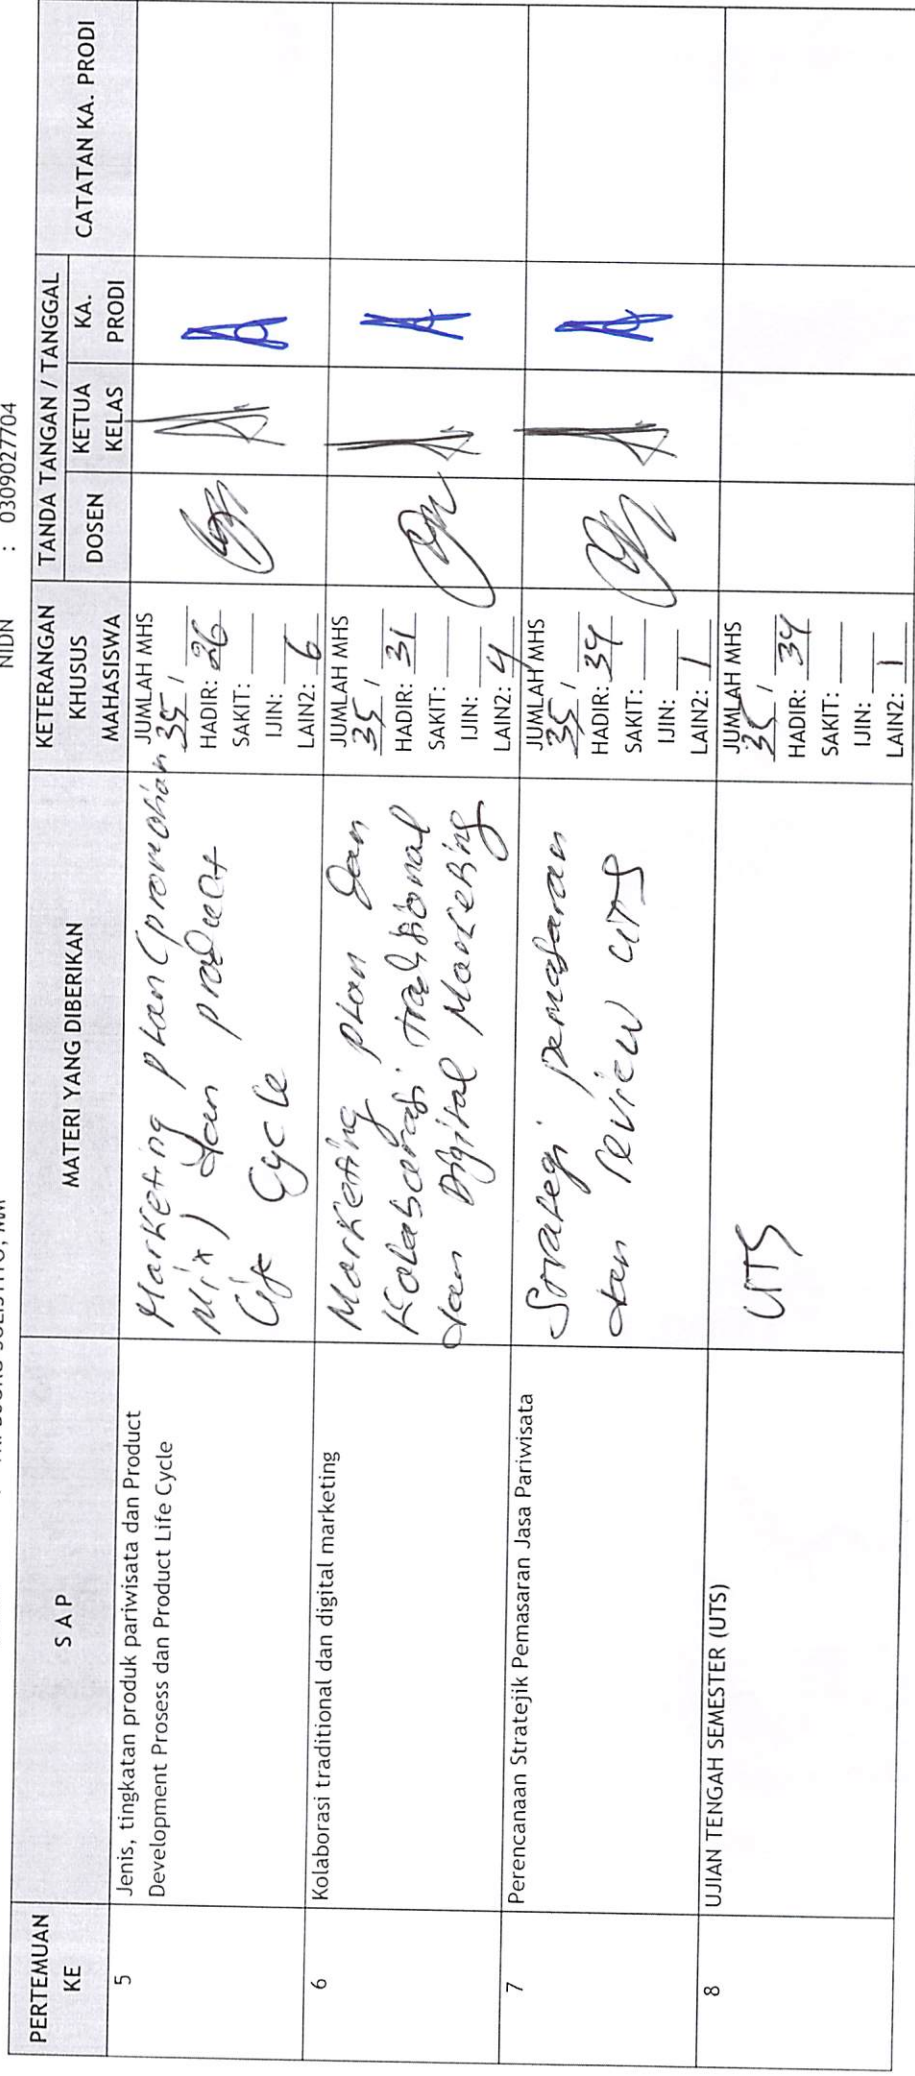 NIDN : 0309027704
PERTEMUAN KE
S A P
MATERI YANG DIBERIKAN
KETERANGAN KHUSUS MAHASISWA
TANDA TANGAN / TANGGAL
DOSEN
KETUA KELAS
KA. PRODI
CATATAN KA. PRODI
5
Jenis, tingkatan produk pariwisata dan Product
Development Prosess dan Product Life Cycle
Marketing plan (promotion
Mix) dan product
Life Cycle
JUMLAH MHS
35
HADIR: 26
SAKIT:
IJIN:
LAIN2: 6
6
Kolaborasi traditional dan digital marketing
Marketing plan dan
Kolaborasi tradisional
dan Digital Marketing
JUMLAH MHS
35
HADIR: 31
SAKIT:
IJIN:
LAIN2: 4
7
Perencanaan Stratejik Pemasaran Jasa Pariwisata
Strategi pemasaran
dan review UTS
JUMLAH MHS
35
HADIR: 34
SAKIT:
IJIN:
LAIN2: 1
8
UJIAN TENGAH SEMESTER (UTS)
UTS
JUMLAH MHS
35
HADIR: 34
SAKIT:
IJIN:
LAIN2: 1